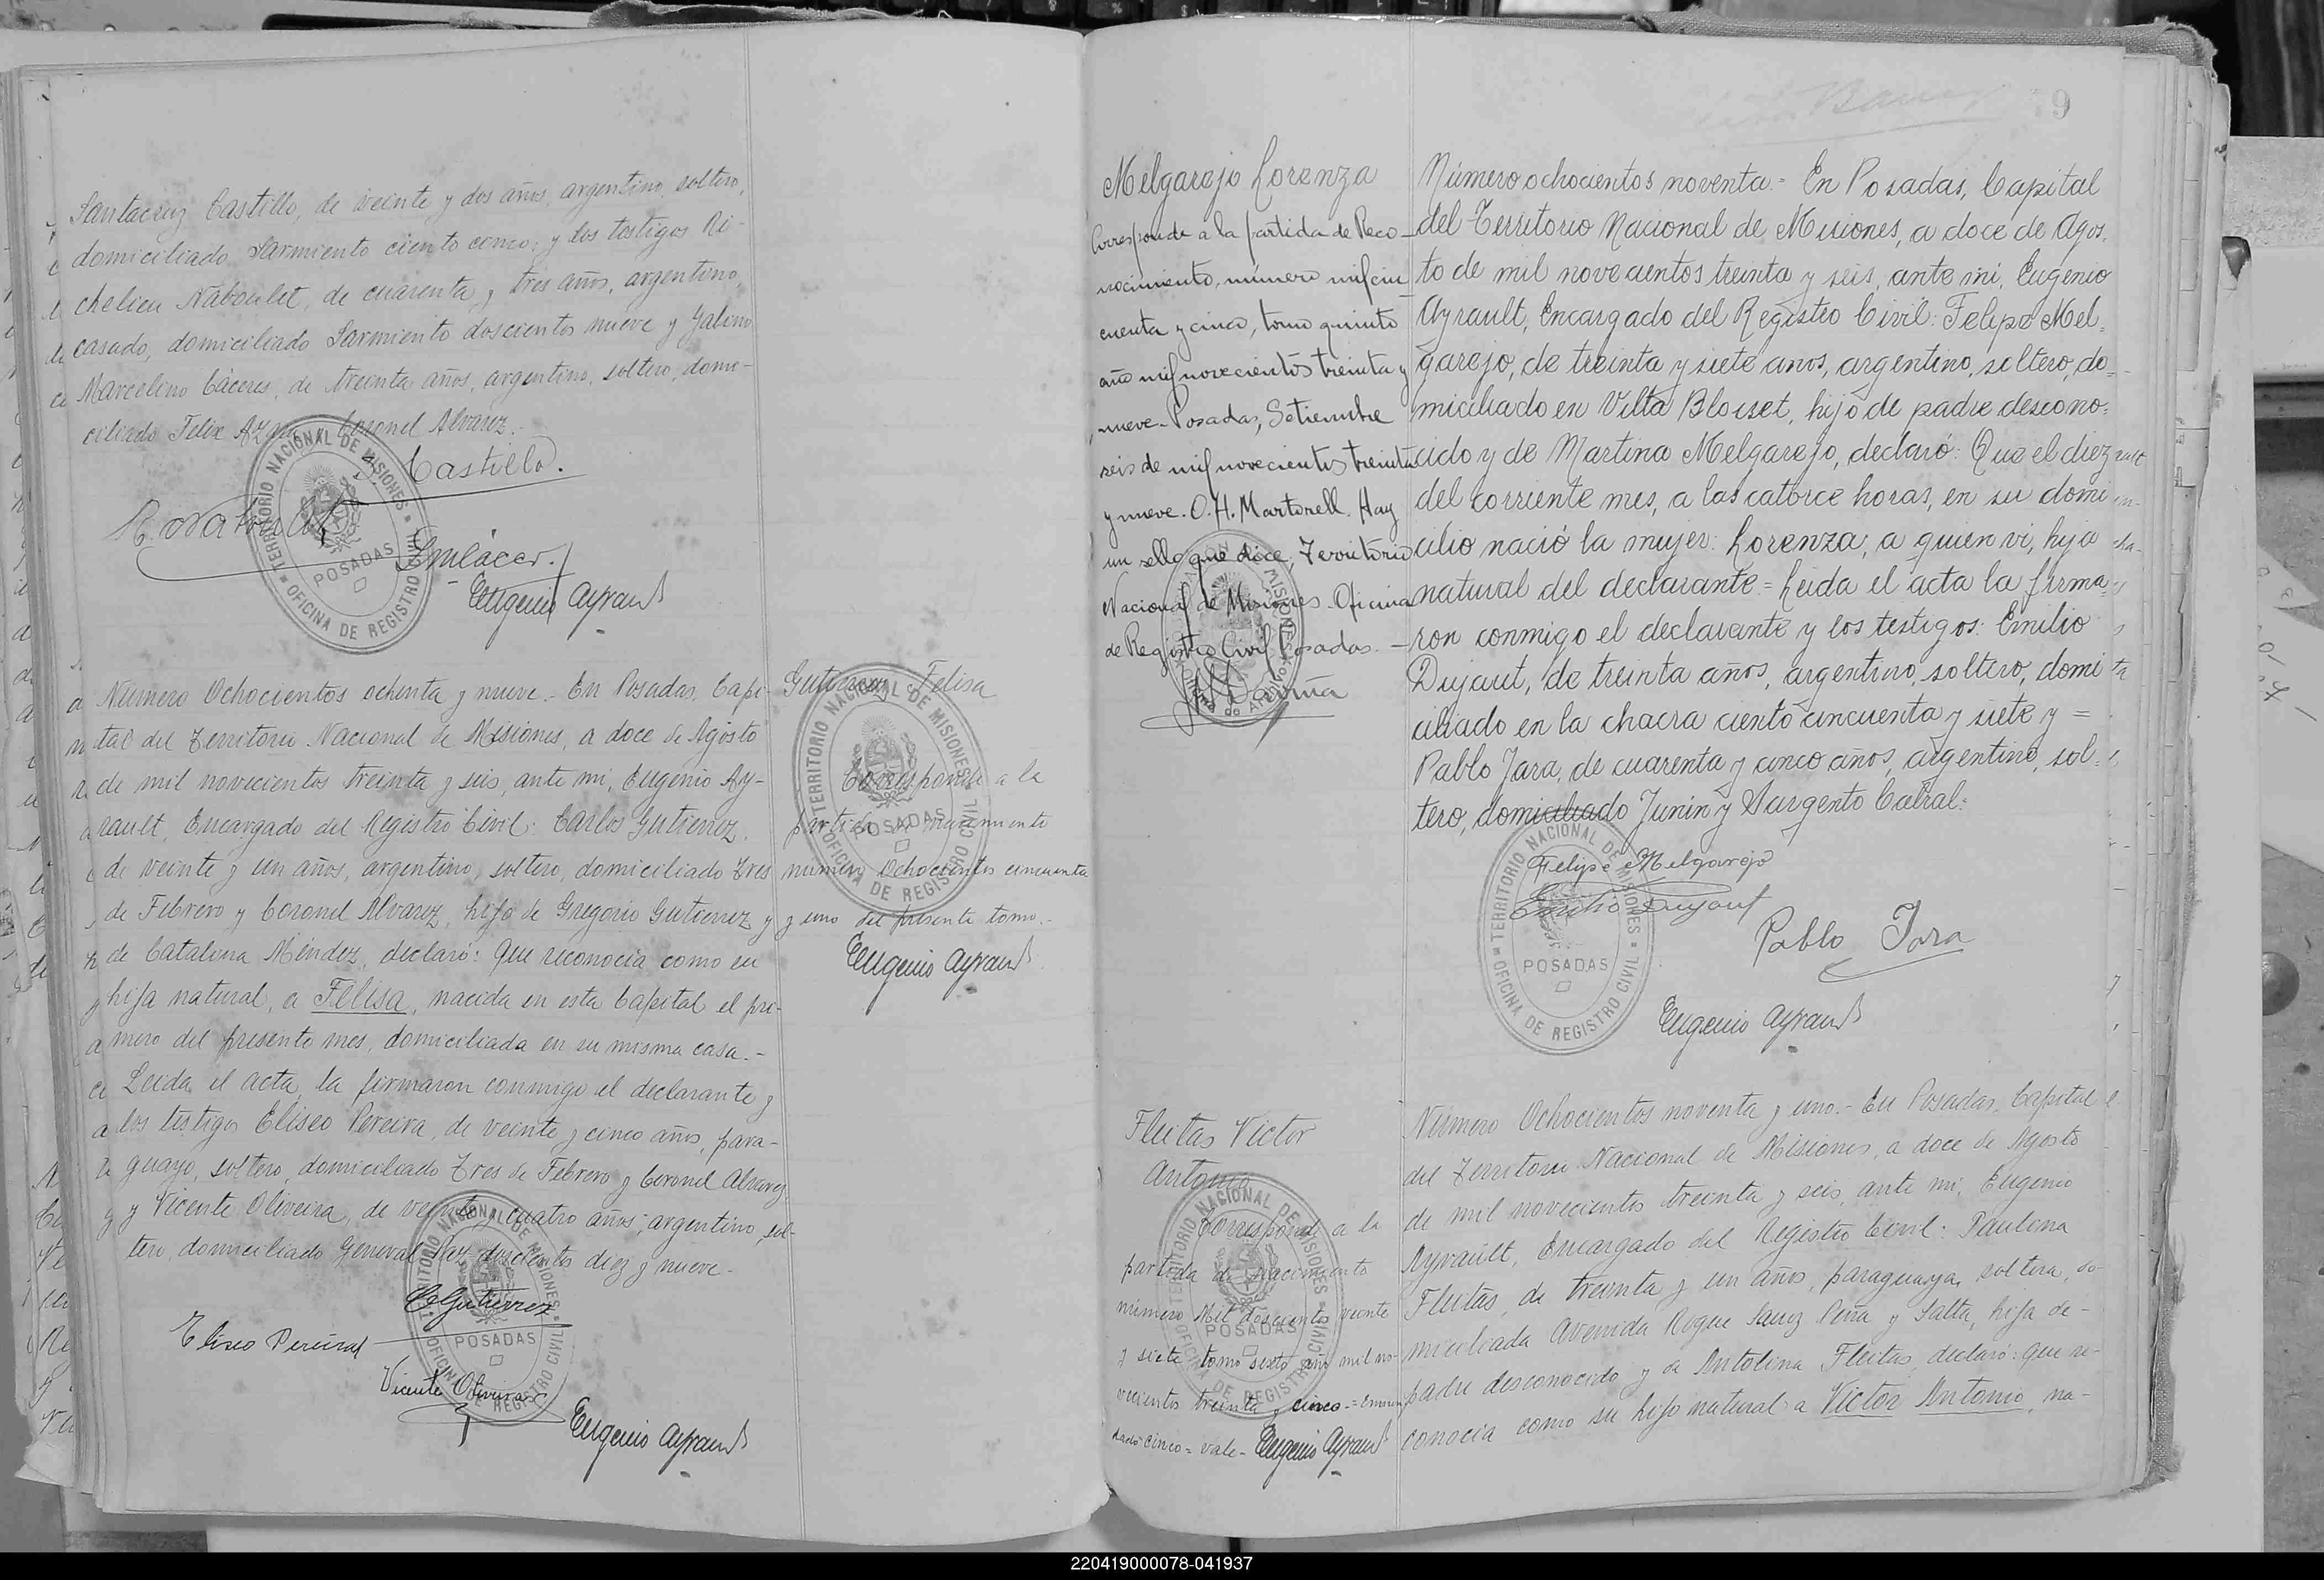 Santacruz Castillo, de veinte y dos años, argentino, soltero,
domiciliado Sarmiento ciento cinco; y los testigos Ri-
chelieu Naboulet, de cuarenta y tres años, argentino,
casado, domiciliado Sarmiento doscientos nueve y Gabino
Marcelino Cáceres, de treinta años, argentino, soltero, domi-
ciliado Felix Coronel Alvarez.-
S. Castillo.
Eugenio Ayrault
TERRITORIO NACIONAL DE MISIONES
POSADAS
OFICINA DE REGISTRO CIVIL
Número Ochocientos ochenta y nueve.- En Posadas, Capi-
tal del Territorio Nacional de Misiones, a doce de Agosto
de mil novecientos treinta y seis, ante mi, Eugenio Ay-
rault, Encargado del Registro Civil: Carlos Gutierrez,
de veinte y un años, argentino, soltero, domiciliado Tres
de Febrero y Coronel Alvarez, hijo de Gregorio Gutierrez y
de Catalina Méndez, declaró: Que reconocía como su
hija natural, a Felisa, nacida en esta Capital el pri-
mero del presente mes, domiciliada en su misma casa.-
Leida el acta, la firmaron conmigo el declarante y
los testigos Eliseo Pereira, de veinte y cinco años, para-
guayo, soltero, domiciliado Tres de Febrero y Coronel Alvarez
y Vicente Oliveira, de veinte y cuatro años, argentino, sol-
tero, domiciliado General Paz doscientos diez y nueve.-
CGutierrez
Eliseo Pereira
Vicente Oliveira
Eugenio Ayrault
TERRITORIO NACIONAL DE MISIONES
POSADAS
OFICINA DE REGISTRO CIVIL
Gutierrez Felisa
Corresponde a la
partida de nacimiento
número Ochocientos cincuenta
y uno del presente tomo.-
Eugenio Ayrault
TERRITORIO NACIONAL DE MISIONES
POSADAS
OFICINA DE REGISTRO CIVIL
9
Melgarejo Lorenza
Corresponde a la partida de Reco-
nocimiento, número mil cin
cuenta y cinco, tomo quinto
año mil novecientos treinta y
nueve- Posadas, Setiembre
seis de mil novecientos treinta
y nueve. O.H. Martorell. Hay
un sello que dice, Territorio
Nacional de Misiones- Oficina
de Registro Civil Posadas.-
Número ochocientos noventa.= En Posadas, Capital
del Territorio Nacional de Misiones, a doce de Agos=
to de mil novecientos treinta y seis, ante mi, Eugenio
Ayrault, Encargado del Registro Civil: Felipe Mel=
garejo, de treinta y siete años, argentino, soltero, do=
miciliado en Villa Bloiset, hijo de padre descono=
cido y de Martina Melgarejo, declaró: Que el diez
del corriente mes, a las catorce horas, en su domi
cilio nació la mujer: Lorenza, a quien vi, hija
natural del declarante= Leida el acta la firma=
ron conmigo el declarante y los testigos: Emilio
Dujaut, de treinta años, argentino, soltero, domi
ciliado en la chacra ciento cincuenta y siete y =
Pablo Jara, de cuarenta y cinco años, argentino, sol=
tero, domiciliado Junin y Sargento Cabral=
Felipe Melgarejo
Emilio Dujaut
Pablo Jara
Eugenio Ayrault
TERRITORIO NACIONAL DE MISIONES
POSADAS
OFICINA DE REGISTRO CIVIL
Fleitas Victor
Antonio
Corresponde a la
partida de nacimiento
número Mil doscientos veinte
y siete tomo sexto año mil no-
vecientos treinta y cinco.-=enmen
dado-cinco=vale- Eugenio Ayrault
TERRITORIO NACIONAL DE MISIONES
POSADAS
OFICINA DE REGISTRO CIVIL
Número Ochocientos noventa y uno.- En Posadas, Capital
del Territorio Nacional de Misiones, a doce de Agosto
de mil novecientos treinta y seis, ante mi, Eugenio
Ayrault, Encargado del Registro Civil: Paulina
Fleitas, de treinta y un años, paraguaya, soltera, do-
miciliada Avenida Roque Saenz Peña y Salta, hija de-
padre desconocido y de Antolina Fleitas, declaró: que re-
conocía como su hijo natural a Victor Antonio, na-
220419000078-041937